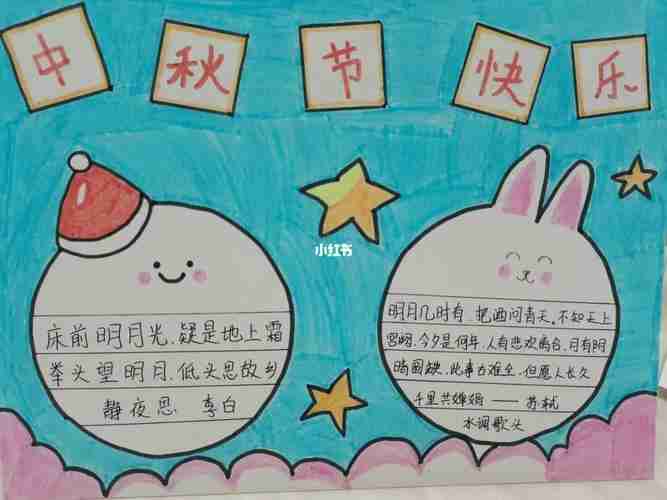 中秋节快乐
小红书
床前明月光.疑是地上霜
拳头望明月.低头思故乡
静夜思 李白
明月几时有.把酒问青天。不知天上
宫阙.今夕是何年.人有悲欢离合.月有阴
晴圆缺.此事古难全.但愿人长久
千里共婵娟 —— 苏轼
水调歌头